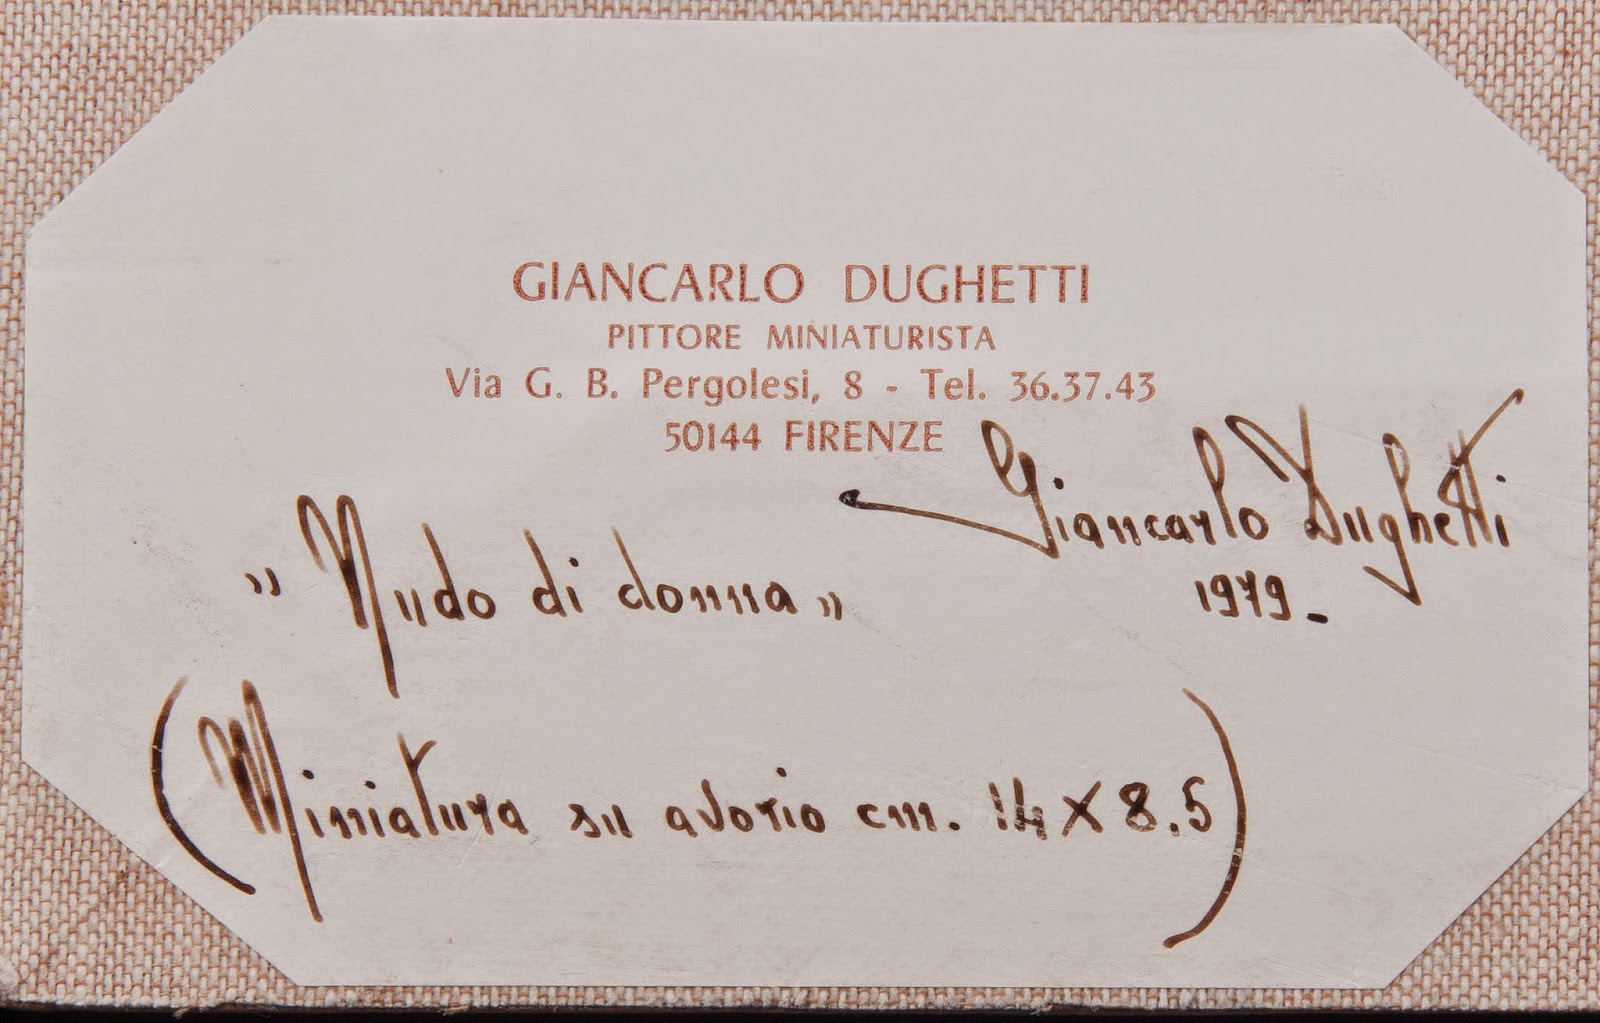 GIANCARLO DUGHETTI
PITTORE MINIATURISTA
Via G. B. Pergolesi, 8 - Tel. 36.37.43
50144 FIRENZE
Giancarlo Dughetti
1979.
"Nudo di donna"
(Miniatura su avorio cm. 14 X 8.5)